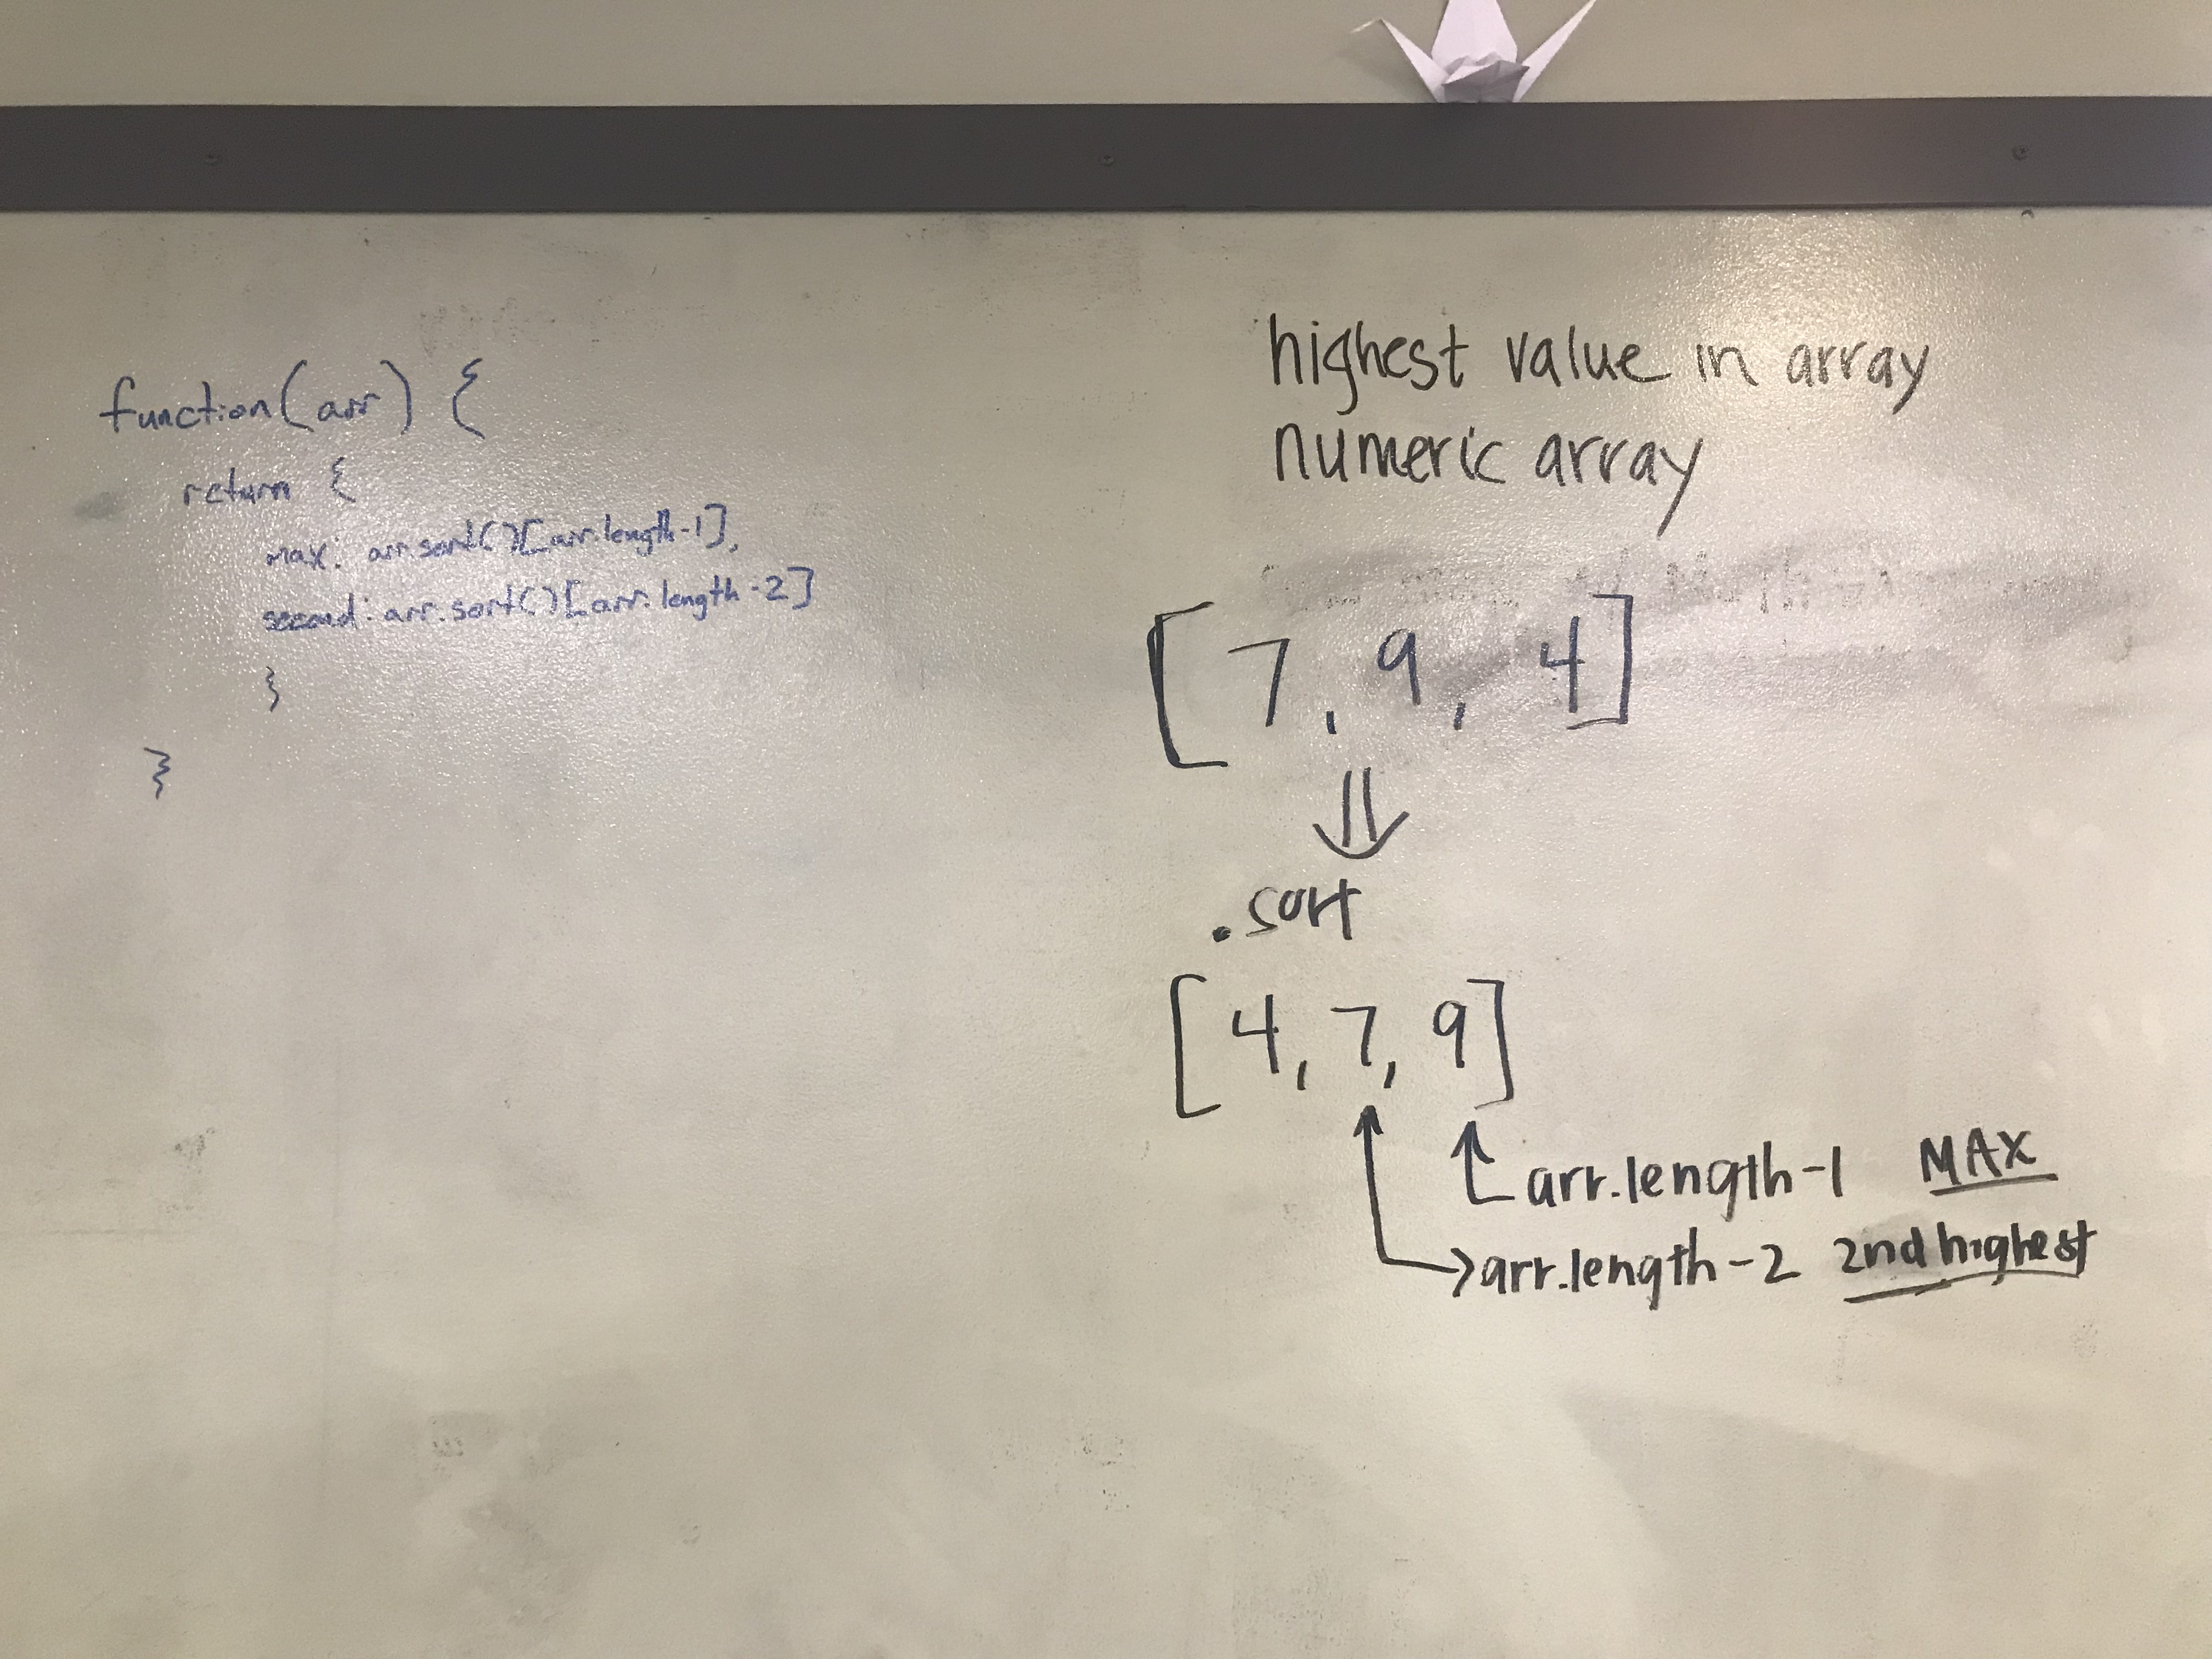 function(arr) {
return {
max: arr.sort()[arr.length-1],
second: arr.sort()[arr.length-2]
}
}
highest value in array
numeric array
[7, 9, 4]
.sort
[4, 7, 9]
arr.length-1 MAX
arr.length-2 2nd highest